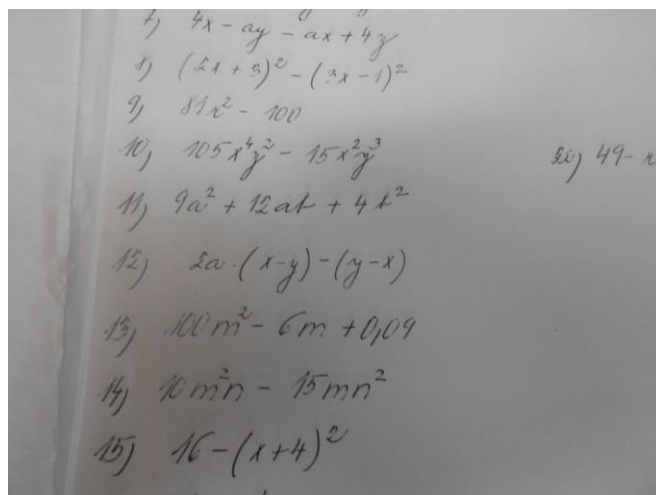 7) 4x - ay - ax + 4y
8) (2x + 3)² - (3x - 1)²
9) 81x² - 100
10) 105x⁴y² - 15x²y³
11) 9a² + 12ab + 4b²
12) 2a · (x-y) - (y-x)
13) 100m² - 6m + 0,09
14) 10m²n - 15mn²
15) 16 - (x+4)²
49 -